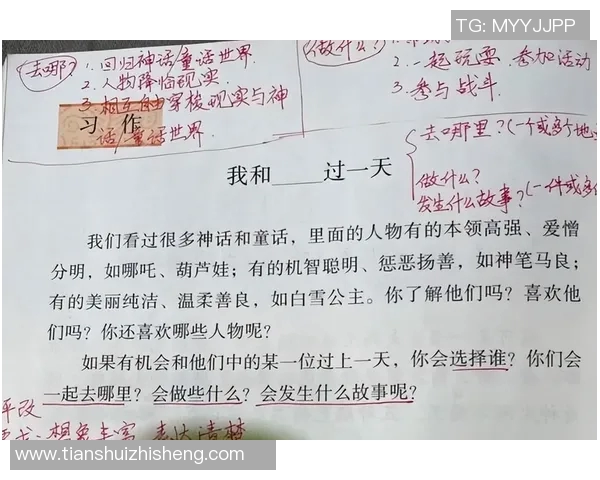 TG: MYYJJPP
去哪?
1.回归神话/童话世界.
2.人物降临现实.
3.相互自由穿梭现实与神
话/童话世界.
做什么?
2.一起玩耍.参加活动
3.参与战斗.
习 作
去哪里?(一个或多个地
做什么?
发生什么故事?(一件或多
我和____过一天
我们看过很多神话和童话,里面的人物有的本领高强、爱憎
分明,如哪吒、葫芦娃;有的机智聪明、惩恶扬善,如神笔马良;
有的美丽纯洁、温柔善良,如白雪公主。你了解他们吗?喜欢他
们吗?你还喜欢哪些人物呢?
如果有机会和他们中的某一位过上一天,你会选择谁?你们会
一起去哪里?会做些什么?会发生什么故事呢?
评改
想象丰富 表达清楚
www.tianshuizhisheng.com